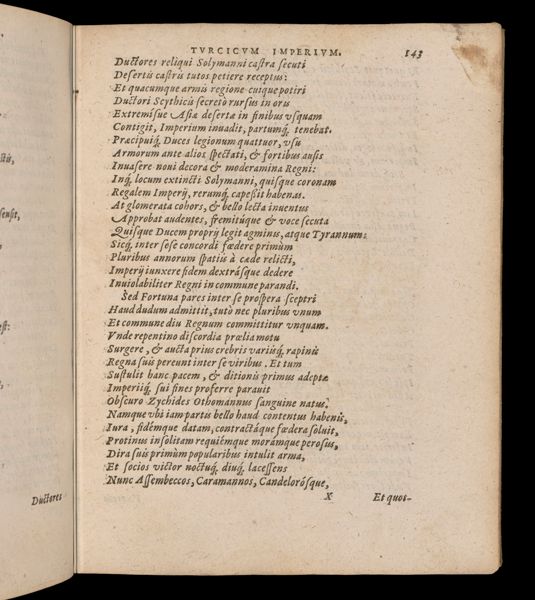 ctis,
sensit,
est:
Ductores
TVRCICVM IMPERIVM. 143
Ductores reliqui Solymanni castra secuti
Desertis castris tutos petiere receptus:
Et quacumque armis regione cuique potiri
Ductori Scythicis secretò rursus in oris
Extremisue Asiæ desertæ in finibus vsquam
Contigit, Imperium inuadit, partumq́; tenebat.
Præcipuiq́; Duces legionum quattuor, vsu
Armorum ante alios spectati, & fortibus ausis
Inuasere noui decora & moderamina Regni:
Inq́; locum extincti Solymanni, quisque coronam
Regalem Imperij, rerumq́; capessit habenas.
At glomerata cohors, & bello lecta iuuentus
Approbat audentes, fremitúque & voce secuta
Quisque Ducem proprij legit agminis, atque Tyrannum.
Sicq́; inter sese concordi fœdere primùm
Pluribus annorum spatiis à cæde relicti,
Imperij iunxere fidem dextrásque dedere
Inuiolabiliter Regni in commune parandi.
Sed Fortuna pares inter se prospera sceptri
Haud dudum admittit, tutò nec pluribus vnum
Et commune diu Regnum committitur vnquam.
Vnde repentino discordia prælia motu
Surgere, & aucta prius crebris variisq́; rapinis
Regna suis pereunt inter se viribus. Et tum
Sustulit hanc pacem, & ditionis primus adeptæ
Imperiiq́; sui fines proferre parauit
Obscuro Zychides Othomannus sanguine natus.
Namque vbi iam partis bello haud contentus habenis,
Iura, fidémque datam, contractáque fœdera soluit,
Protinus insolitam requiémque morámque perosus,
Dira suis primùm popularibus intulit arma,
Et socios victor noctuq́; diuq́; lacessens
Nunc Assembeccos, Caramannos, Candelorósque,
X Et quot-